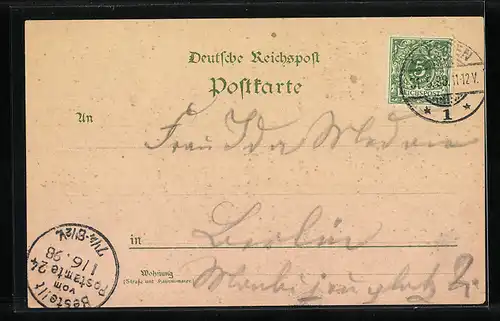 Deutsche Reichspost
Postkarte
5
REICHSPOST
11-12V.
* 1 *
An
Frau Ida
in Berlin
Wohnung
(Straße und Hausnummer)
Monbijouplatz 2.
Bestellt
vom
Postamte 24
1/6 98
7¼-8½V.